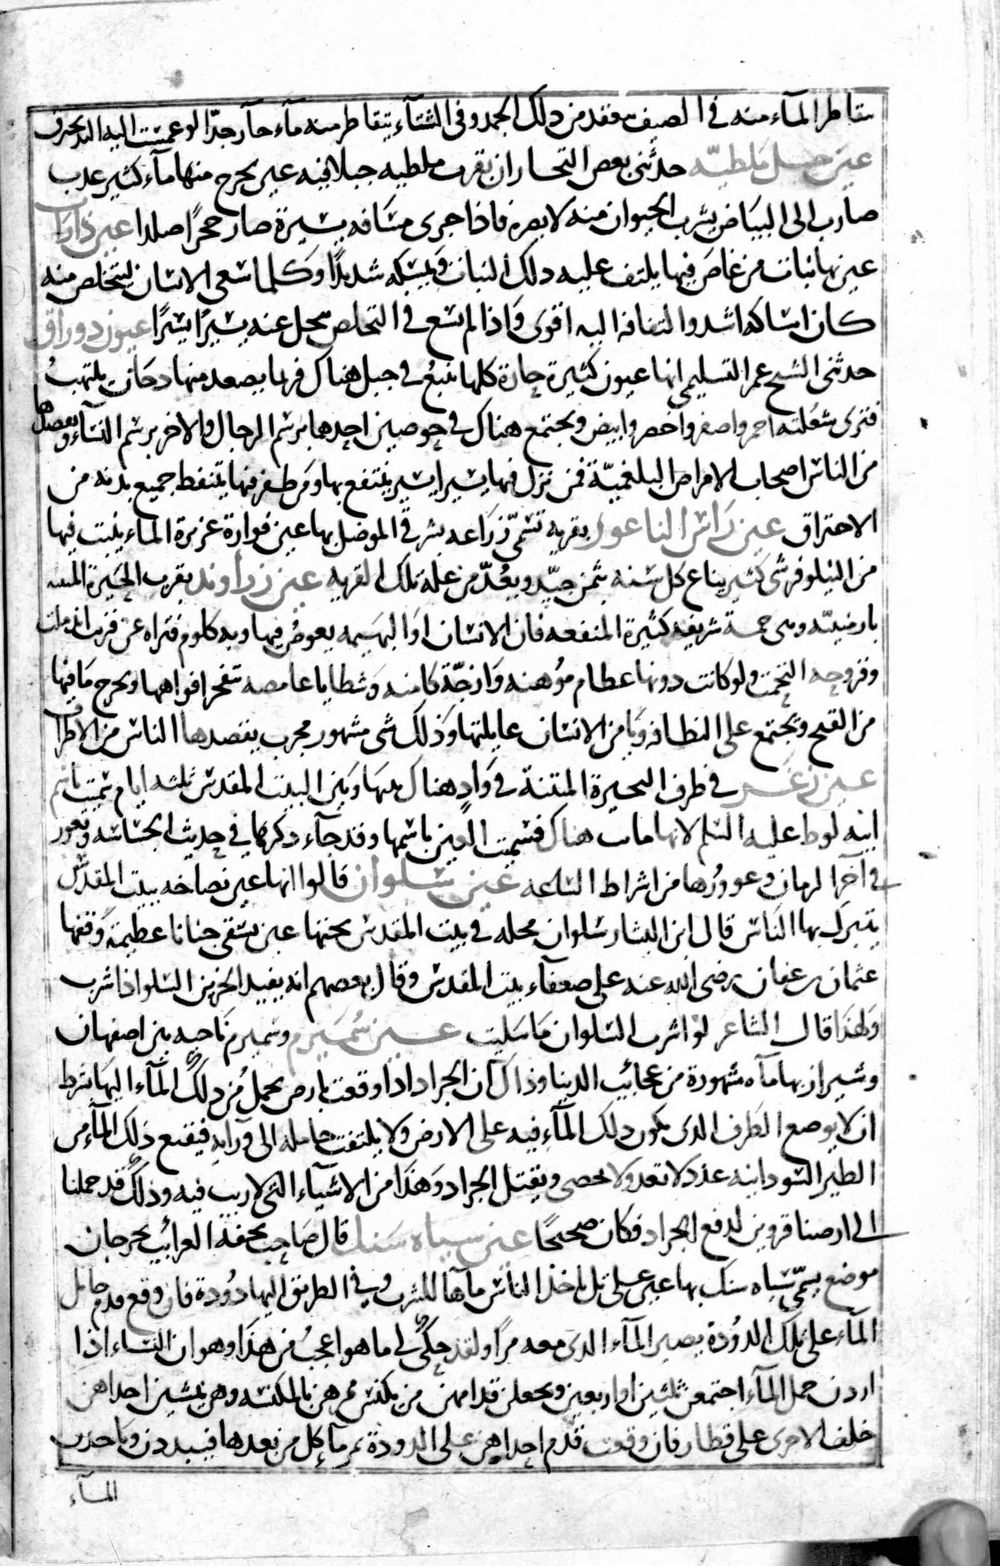 يتقاطر المآء منه في الصيف فقد من ذلك الجمد وفى الشتآء يتقاطر منه مآء حآر جدّا لو غمست اليد اليه تحترق
عين جبل ملطيّه حدثنى بعض التجار ان بقرب ملطيه جبلا فيه عين يخرج منها مآء كثير عذب
ضارب الى البياض يشرب الحيوان منه لا يضره فاذا جرى مسافه يسيرة صار حجرًا صلدا عين دارا
عين بها نبات من غاص فيها يلتف عليه ذلك النبات ويمسكه شديدًا وكلما سعى الانسان ليتخلص منه
كان امساكه اشد والتفافه اليه اقوى واذا لم يسع فى التخلص يحل عنه يسيرًا يسيرًا عيون دوراق
حدثنى الشيخ عمر التسليمى انها عيون كثيرة حارة كلها تنبع فى جبل هناك فربما يصعد منها دخان يلتهب
فترى شعلته احمر واصفر واخضر وابيض ويجتمع هناك فى حوضين احدهما برسم الرجال والاخر برسم النسآء ويقصدها
من الناس اصحاب الامراض البلغميّة فمن نزل فيها يسيرا يسيرا ينتفع بها ومن طفر فيها يتنفط جميع بدنه من
الاحتراق عين رأس الناعور بقرية تسمى زراعه شرقى الموصل بها عين فوارة غزيرة الماء ينبت فيها
من النيلوفر شى كثير يباع كل سنه بثمن جيّد ويعدّ من غلة تلك القريه عين زراوند بقرب البحيرة المنتنه
بارمنيّه وهى حمة شريفه كثيرة المنفعه فان الانسان او البهيمه يغوص فيها وبه كلوم فتراه عن قريب اندملت
وقروحه التحمت ولو كانت دونها عظام موهنه وازجّة كامنه وشظايا غامضه تنفجر افواهها ويخرج ما فيها
من القيح ويجتمع على النظافه ويامن الانسان غايلتها وذلك شى مشهور مجرب يقصدها الناس من الاطراف
عين زغر فى طرف البحيرة المنتنة فى واد هناك بينها وبين البيت المقدس ثلثه ايام سميت باسم
ابنه لوط عليه السلم لانها ماتت هناك فسميت العين باسمها وقد جآء ذكرها فى حديث الجساسه وتغور
فى آخر الزمان وغوورها من اشراط الساعه عين سلوان قالوا انها عين نضاخه ببيت المقدس
يتبرك بها الناس قال ابن البشار سلوان محله فى بيت المقدس تحتها عين تسقى جنانا عظيمة وقفها
عثمان بن عفان رضى الله عنه على ضعفآء بيت المقدس وقال بعضهم انه يفيد الحزين السلو اذا شرب
ولهذا قال الشاعر لو اشرب السلوان ما سليت عين سُمَيرم وسميرم ناحيه بين اصفهان
وشيراز بها مآء مشهورة من عجائب الدنيا وذاك ان الجراد اذا وقعت بارض يحمل من ذلك المآء اليها بشرط
ان لا يوضع الظرف الذى يكون ذلك المآء فيه على الارض ولا يلتفت حامله الى ورآيه فيتبع ذلك المآء من
الطير السودانيه عدد لا تعد ولا تحصى ويقتل الجراد وهذا من الاشيآء التى لا ريب فيه وذلك قد حملنا
الى ارضنا قزوين لدفع الجراد فكان صحيحًا عين سياه سنك قال صاحب تحفة الغرايب بجرجان
موضع يسمى سياه سنك بها عين على تل ياخذ الناس ماءها للشرب وفى الطريق اليها دودة فان وقع قدم حامل
المآء على تلك الدودة يصير المآء الذى معه مرًا ولقد حكى لى ما هو اعجب من هذا وهو ان النساء اذا
اردن حمل المآء اجتمعن ثلثين او اربعين ويجعلن قدامهن من يكنس ممرهن بالمكنسه وهن يمشين احداهن
خلف الاخرى على قطار فان وقعت قدم احداهن على الدودة يمر مآء كل من بعدها فيبددن وياخذن
المآء